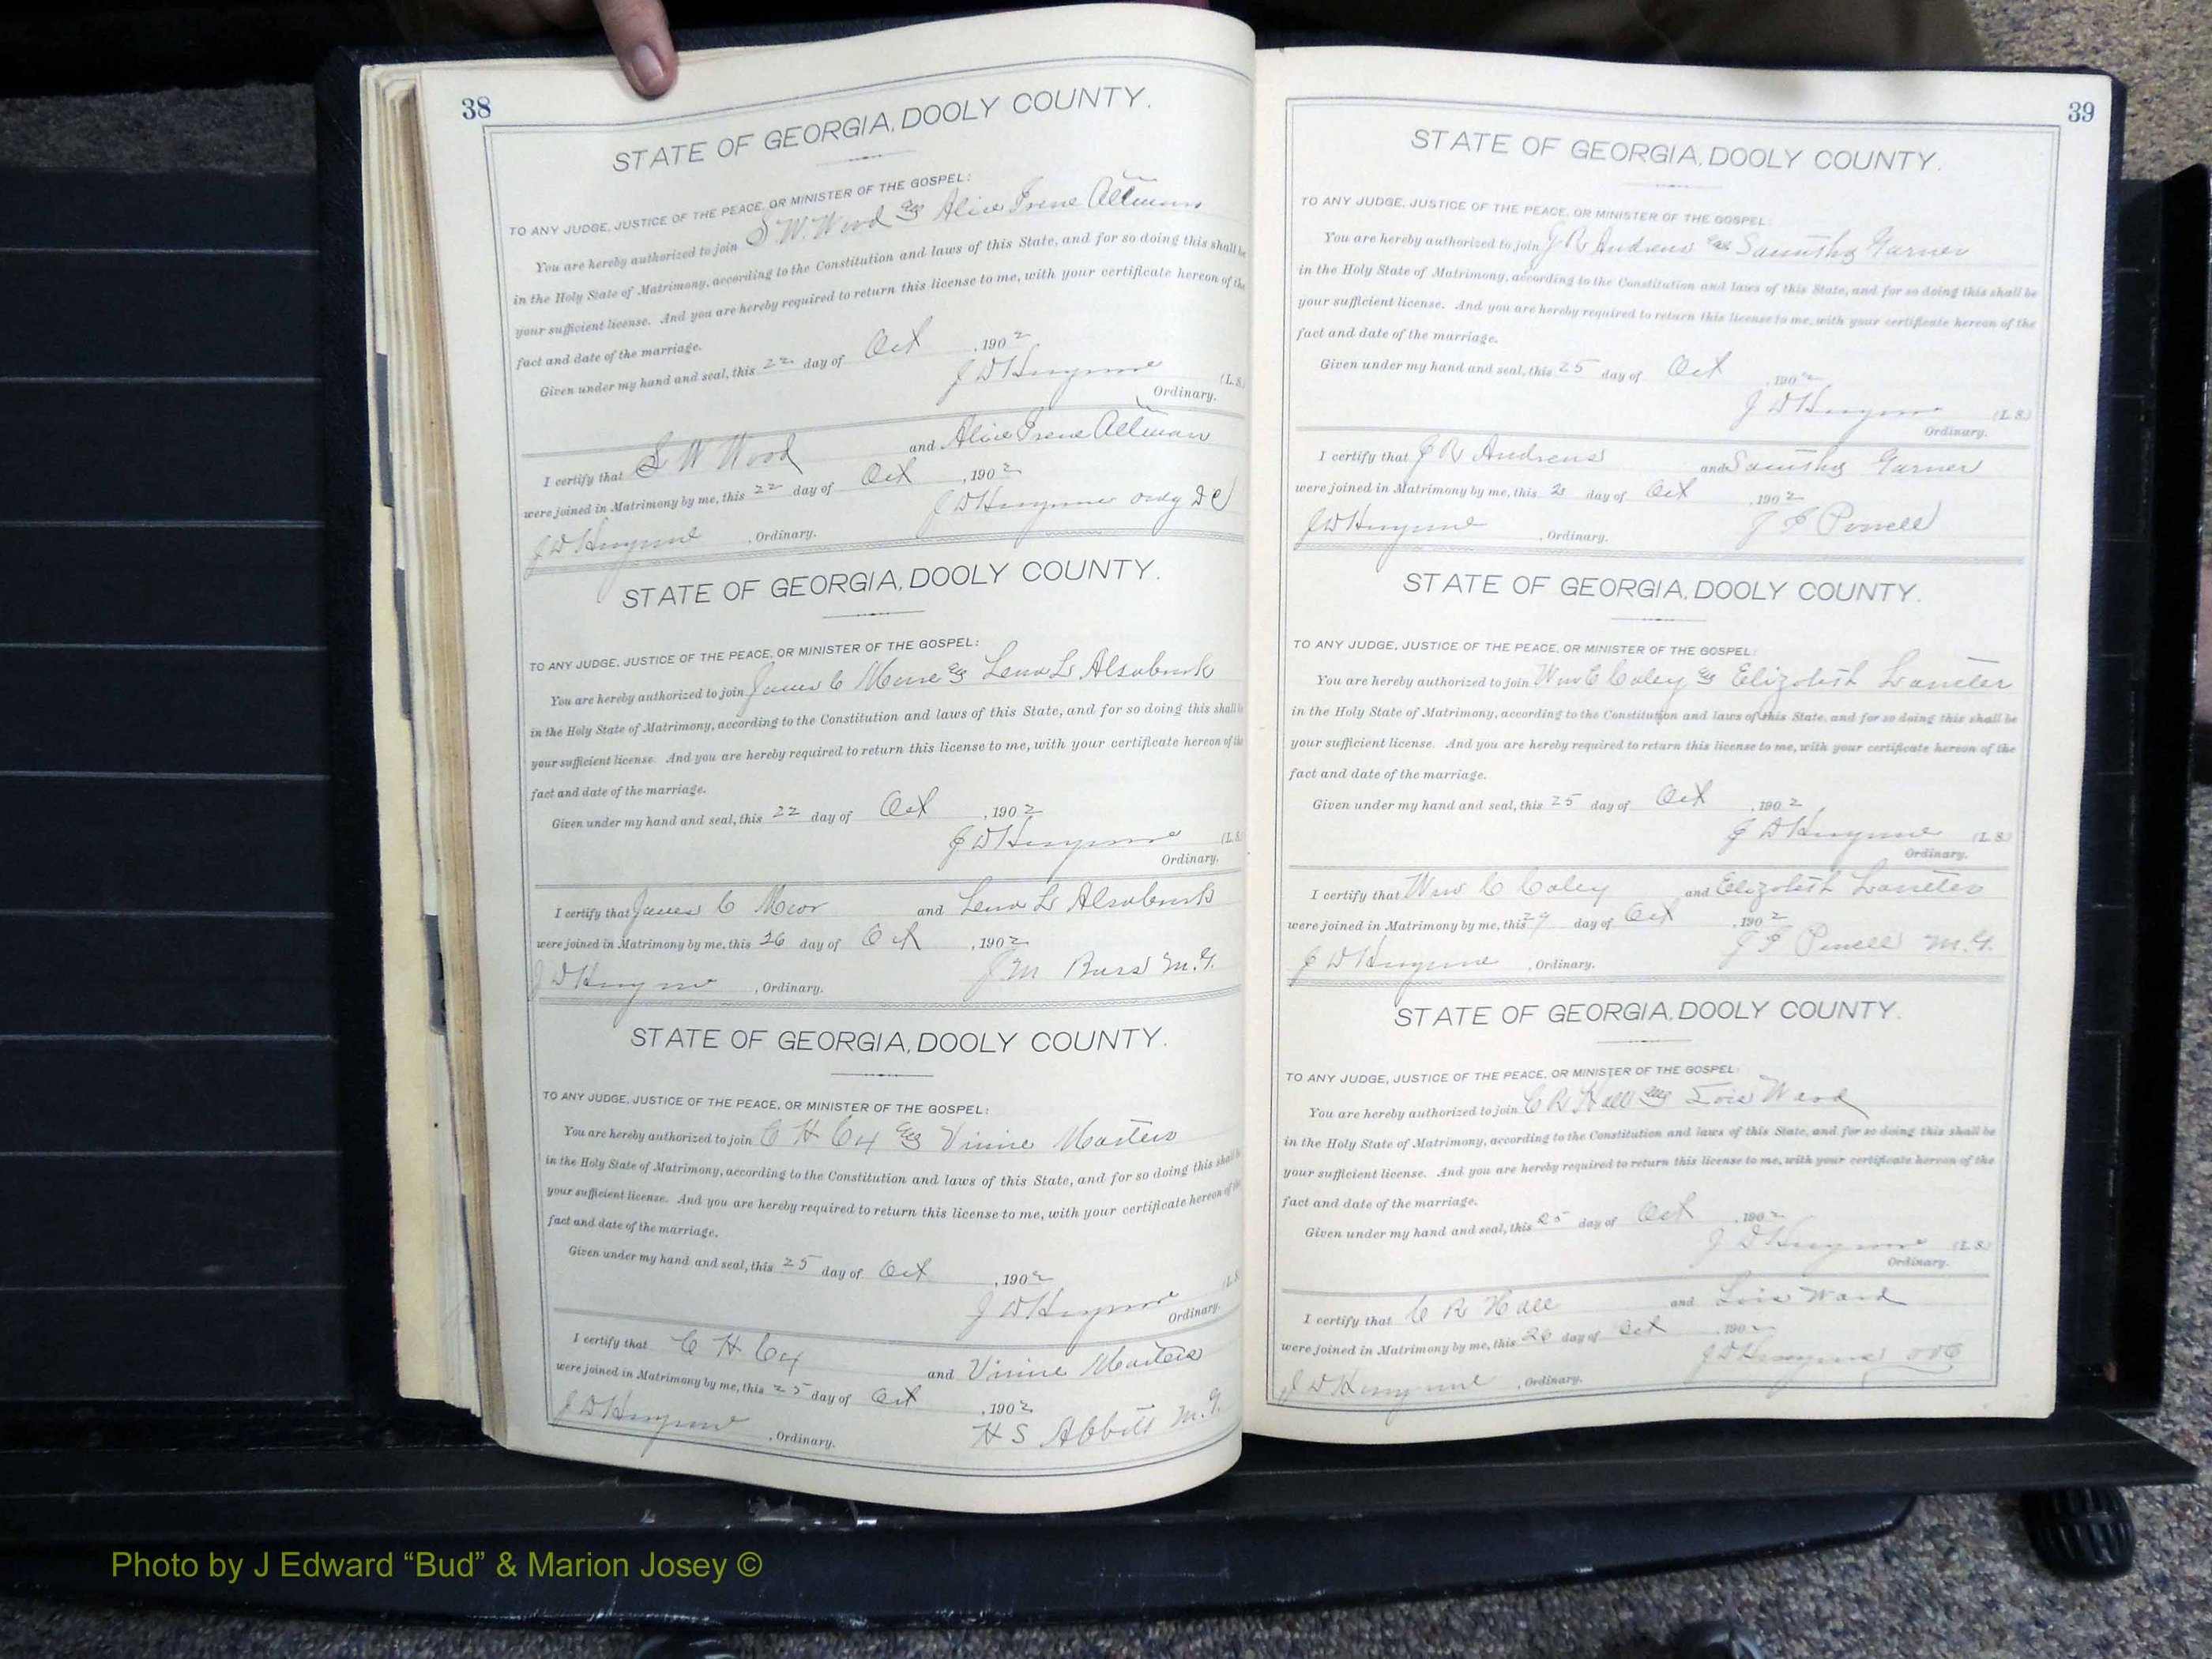 38
STATE OF GEORGIA, DOOLY COUNTY.
TO ANY JUDGE, JUSTICE OF THE PEACE, OR MINISTER OF THE GOSPEL:
You are hereby authorized to join S. W. Wood & Alice Irene Altman
in the Holy State of Matrimony, according to the Constitution and laws of this State, and for so doing this shall be
your sufficient license. And you are hereby required to return this license to me, with your certificate hereon of the
fact and date of the marriage.
Given under my hand and seal, this 22 day of Oct , 1902
J D Hargrove (L. S.)
Ordinary.
I certify that S W Wood and Alice Irene Altman
were joined in Matrimony by me, this 22 day of Oct , 1902
J D Hargrove , Ordinary. J D Hargrove ordy D C
STATE OF GEORGIA, DOOLY COUNTY.
TO ANY JUDGE, JUSTICE OF THE PEACE, OR MINISTER OF THE GOSPEL:
You are hereby authorized to join James C & Lena L Alsabrook
in the Holy State of Matrimony, according to the Constitution and laws of this State, and for so doing this shall be
your sufficient license. And you are hereby required to return this license to me, with your certificate hereon of the
fact and date of the marriage.
Given under my hand and seal, this 22 day of Oct , 1902
J D Hargrove (L. S.)
Ordinary.
I certify that James C and Lena L Alsabrook
were joined in Matrimony by me, this 26 day of Oct , 1902
J D Hargrove , Ordinary. J M M. G.
STATE OF GEORGIA, DOOLY COUNTY.
TO ANY JUDGE, JUSTICE OF THE PEACE, OR MINISTER OF THE GOSPEL:
You are hereby authorized to join C H & Vinnie Masters
in the Holy State of Matrimony, according to the Constitution and laws of this State, and for so doing this shall be
your sufficient license. And you are hereby required to return this license to me, with your certificate hereon of the
fact and date of the marriage.
Given under my hand and seal, this 25 day of Oct , 1902
J D Hargrove (L. S.
Ordinary.
I certify that C H and Vinnie Masters
were joined in Matrimony by me, this 25 day of Oct , 1902
J D Hargrove , Ordinary. H S Abbott M. G.
39
STATE OF GEORGIA, DOOLY COUNTY.
TO ANY JUDGE, JUSTICE OF THE PEACE, OR MINISTER OF THE GOSPEL:
You are hereby authorized to join J R Andrews & Garner
in the Holy State of Matrimony, according to the Constitution and laws of this State, and for so doing this shall be
your sufficient license. And you are hereby required to return this license to me, with your certificate hereon of the
fact and date of the marriage.
Given under my hand and seal, this 25 day of Oct , 1902
J D Hargrove (L. S.)
Ordinary.
I certify that J R Andrews and Garner
were joined in Matrimony by me, this day of Oct , 1902
J D Hargrove , Ordinary. J F Powell
STATE OF GEORGIA, DOOLY COUNTY.
TO ANY JUDGE, JUSTICE OF THE PEACE, OR MINISTER OF THE GOSPEL:
You are hereby authorized to join Wm C Coley & Elizabeth Lassiter
in the Holy State of Matrimony, according to the Constitution and laws of this State, and for so doing this shall be
your sufficient license. And you are hereby required to return this license to me, with your certificate hereon of the
fact and date of the marriage.
Given under my hand and seal, this 25 day of Oct , 1902
J D Hargrove (L. S.)
Ordinary.
I certify that Wm C Coley and Elizabeth Lassiter
were joined in Matrimony by me, this 29 day of Oct , 1902
J D Hargrove , Ordinary. J F Powell M. G.
STATE OF GEORGIA, DOOLY COUNTY.
TO ANY JUDGE, JUSTICE OF THE PEACE, OR MINISTER OF THE GOSPEL:
You are hereby authorized to join C R Hall & Lois Ward
in the Holy State of Matrimony, according to the Constitution and laws of this State, and for so doing this shall be
your sufficient license. And you are hereby required to return this license to me, with your certificate hereon of the
fact and date of the marriage.
Given under my hand and seal, this 25 day of Oct , 1902
J D Hargrove (L. S.)
Ordinary.
I certify that C R Hall and Lois Ward
were joined in Matrimony by me, this 26 day of Oct , 1902
J D Hargrove , Ordinary. J D Hargrove
Photo by J Edward “Bud” & Marion Josey ©